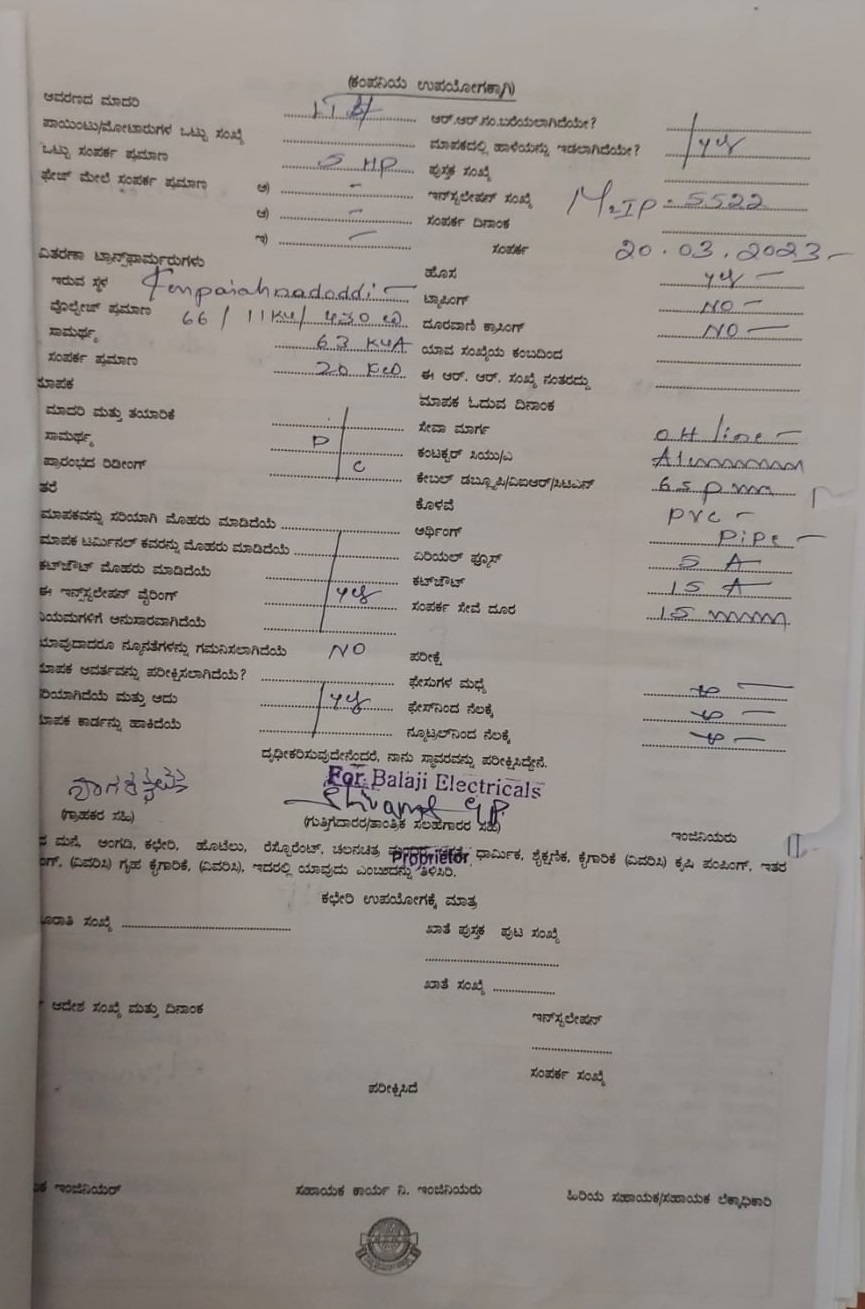 (ಕಂಪನಿಯ ಉಪಯೋಗಕ್ಕಾಗಿ)
ಆವರಣದ ಮಾದರಿ ಆರ್.ಆರ್.ಸಂ.ಬರೆಯಲಾಗಿದೆಯೇ?
ಪಾಯಿಂಟು/ಮೋಟಾರುಗಳ ಒಟ್ಟು ಸಂಖ್ಯೆ ಮಾಪಕದಲ್ಲಿ ಹಾಳೆಯನ್ನು ಇಡಲಾಗಿದೆಯೇ? yes
ಒಟ್ಟು ಸಂಪರ್ಕ ಪ್ರಮಾಣ 5 HP ಪುಸ್ತಕ ಸಂಖ್ಯೆ
ಫೇಜ್ ಮೇಲೆ ಸಂಪರ್ಕ ಪ್ರಮಾಣ ಅ) - ಇನ್‌ಸ್ಟಲೇಷನ್ ಸಂಖ್ಯೆ IP - 5522
ಆ) - ಸಂಪರ್ಕ ದಿನಾಂಕ
ಇ) - ಸಂಪರ್ಕ 20.03.2023 -
ವಿತರಣಾ ಟ್ರಾನ್ಸ್‌ಫಾರ್ಮರುಗಳು ಹೊಸ yes -
ಇರುವ ಸ್ಥಳ Kenpaiahnadoddi - ಟ್ಯಾಪಿಂಗ್ NO -
ವೋಲ್ಟೇಜ್ ಪ್ರಮಾಣ 66 / 11KV / 430 ದೂರವಾಣಿ ಕ್ರಾಸಿಂಗ್ NO -
ಸಾಮರ್ಥ್ಯ 63 KVA ಯಾವ ಸಂಖ್ಯೆಯ ಕಂಬದಿಂದ
ಸಂಪರ್ಕ ಪ್ರಮಾಣ 20 ಈ ಆರ್. ಆರ್. ಸಂಖ್ಯೆ ನಂತರದ್ದು
ಮಾಪಕ ಮಾಪಕ ಓದುವ ದಿನಾಂಕ
ಮಾದರಿ ಮತ್ತು ತಯಾರಿಕೆ ಸೇವಾ ಮಾರ್ಗ OH line -
ಸಾಮರ್ಥ್ಯ D ಕಂಟಕ್ಟರ್ ಸಿಯು/ಎ
ಪ್ರಾರಂಭದ ರಿಡೀಂಗ್ C ಕೇಬಲ್ ಡಬ್ಲ್ಯೂಪಿ/ವಿಐಆರ್/ಸಿಟಿಎಸ್
ತರೆ ಕೊಳವೆ PVC -
ಮಾಪಕವನ್ನು ಸರಿಯಾಗಿ ಮೊಹರು ಮಾಡಿದೆಯೆ ಅರ್ಥಿಂಗ್ Pipe -
ಮಾಪಕ ಟರ್ಮಿನಲ್ ಕವರನ್ನು ಮೊಹರು ಮಾಡಿದೆಯೆ ಎರಿಯಲ್ ಫ್ಯೂಸ್ 5 A
ಕಟ್‌ಔಟ್ ಮೊಹರು ಮಾಡಿದೆಯೆ ಕಟ್‌ಔಟ್ 15 A
ಈ ಇನ್ಸ್‌ಸ್ಟಲೇಷನ್ ವೈರಿಂಗ್ yes ಸಂಪರ್ಕ ಸೇವೆ ದೂರ
ನಿಯಮಗಳಿಗೆ ಅನುಸಾರವಾಗಿದೆಯೆ
ಯಾವುದಾದರೂ ನ್ಯೂನತೆಗಳನ್ನು ಗಮನಿಸಲಾಗಿದೆಯೆ NO ಪರೀಕ್ಷೆ
ಮಾಪಕ ಆವರ್ತವನ್ನು ಪರೀಕ್ಷಿಸಲಾಗಿದೆಯೆ? ಫೇಸುಗಳ ಮಧ್ಯೆ
ರಿಯಾಗಿದೆಯೆ ಮತ್ತು ಅದು yes ಫೇಸ್‌ನಿಂದ ನೆಲಕ್ಕೆ
ಮಾಪಕ ಕಾರ್ಡನ್ನು ಹಾಕಿದೆಯೆ ನ್ಯೂಟ್ರಲ್‌ನಿಂದ ನೆಲಕ್ಕೆ
ದೃಢೀಕರಿಸುವುದೇನೆಂದರೆ, ನಾನು ಸ್ಥಾವರವನ್ನು ಪರೀಕ್ಷಿಸಿದ್ದೇನೆ.
For Balaji Electricals
(ಗ್ರಾಹಕರ ಸಹಿ) (ಗುತ್ತಿಗೆದಾರರ/ತಾಂತ್ರಿಕ ಸಲಹೆಗಾರರ ಸಹಿ) ಇಂಜಿನಿಯರು
ಮನೆ, ಅಂಗಡಿ, ಕಛೇರಿ, ಹೋಟೆಲು, ರೆಸ್ಟೋರೆಂಟ್, ಚಲನಚಿತ್ರ ಧಾರ್ಮಿಕ, ಶೈಕ್ಷಣಿಕ, ಕೈಗಾರಿಕೆ (ವಿವರಿಸಿ) ಕೃಷಿ ಪಂಪಿಂಗ್, ಇತರ
Proprietor
(ವಿವರಿಸಿ) ಗೃಹ ಕೈಗಾರಿಕೆ, (ವಿವರಿಸಿ), ಇದರಲ್ಲಿ ಯಾವುದು ಎಂಬುದನ್ನು ತಿಳಿಸಿರಿ.
ಕಛೇರಿ ಉಪಯೋಗಕ್ಕೆ ಮಾತ್ರ
ಸಂಖ್ಯೆ ಖಾತೆ ಪುಸ್ತಕ ಪುಟ ಸಂಖ್ಯೆ
ಖಾತೆ ಸಂಖ್ಯೆ
ಆದೇಶ ಸಂಖ್ಯೆ ಮತ್ತು ದಿನಾಂಕ ಇನ್‌ಸ್ಟಲೇಷನ್
ಸಂಪರ್ಕ ಸಂಖ್ಯೆ
ಪರೀಕ್ಷಿಸಿದೆ
ಇಂಜಿನಿಯರ್ ಸಹಾಯಕ ಕಾರ್ಯ ನಿ. ಇಂಜಿನಿಯರು ಹಿರಿಯ ಸಹಾಯಕ/ಸಹಾಯಕ ಲೆಕ್ಕಾಧಿಕಾರಿ